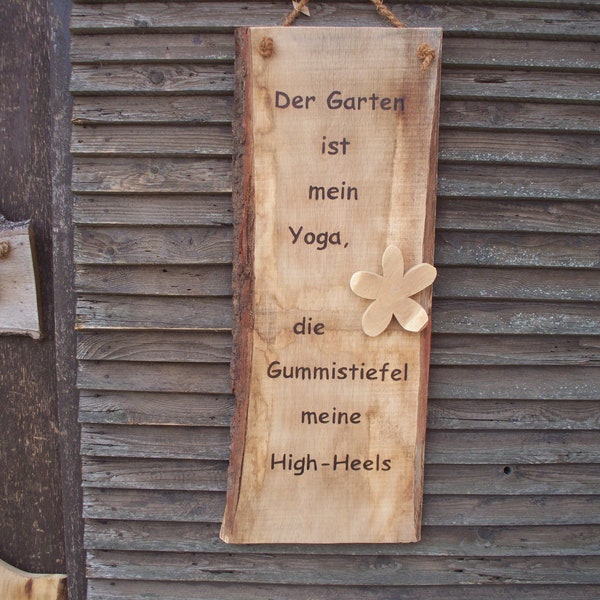 Der Garten
ist
mein
Yoga,
die
Gummistiefel
meine
High-Heels